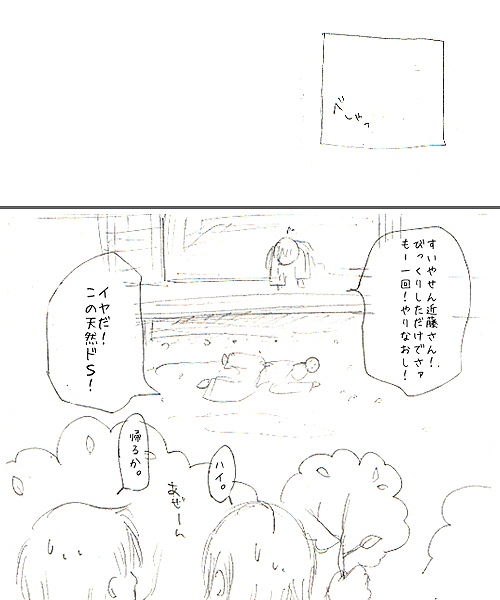 べしゃっ
すいやせん近藤さん！
びっくりしただけでさァ
もー一回！やりなおし！
イヤだ！
この天然ドS！
帰るか。
ハイ。